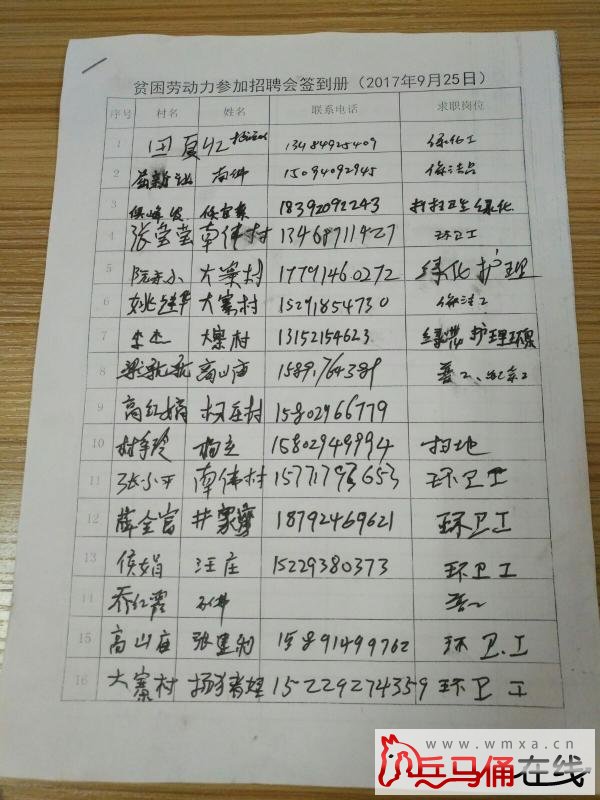 贫困劳动力参加招聘会签到册（2017年9月25日）
序号 村名 姓名 联系电话 求职岗位
1 田夏红 13484925409 绿化工
2 南伟 15094092945 保洁员
3 18392092243 打扫卫生 绿化
4 张莹莹 南伟村 13468711427 环卫工
5 大寨村 17791460272 绿化护理
6 大寨村 15291854730 保洁工
7 大寨村 13152154623 护理环保
8 高山庙 15891764389 普工
9 高红娟 15802966779
10 15802949994 扫地
11 张小平 南伟村 15771793653 环卫工
12 薛全富 18792469621 环卫工
13 侯娟 汪庄 15229380373 环卫工
14 乔红霞
15 高山庙 张星利 15891499762 环卫工
16 大寨村 15229274359 环卫工
www.wmxa.cn
兵马俑在线